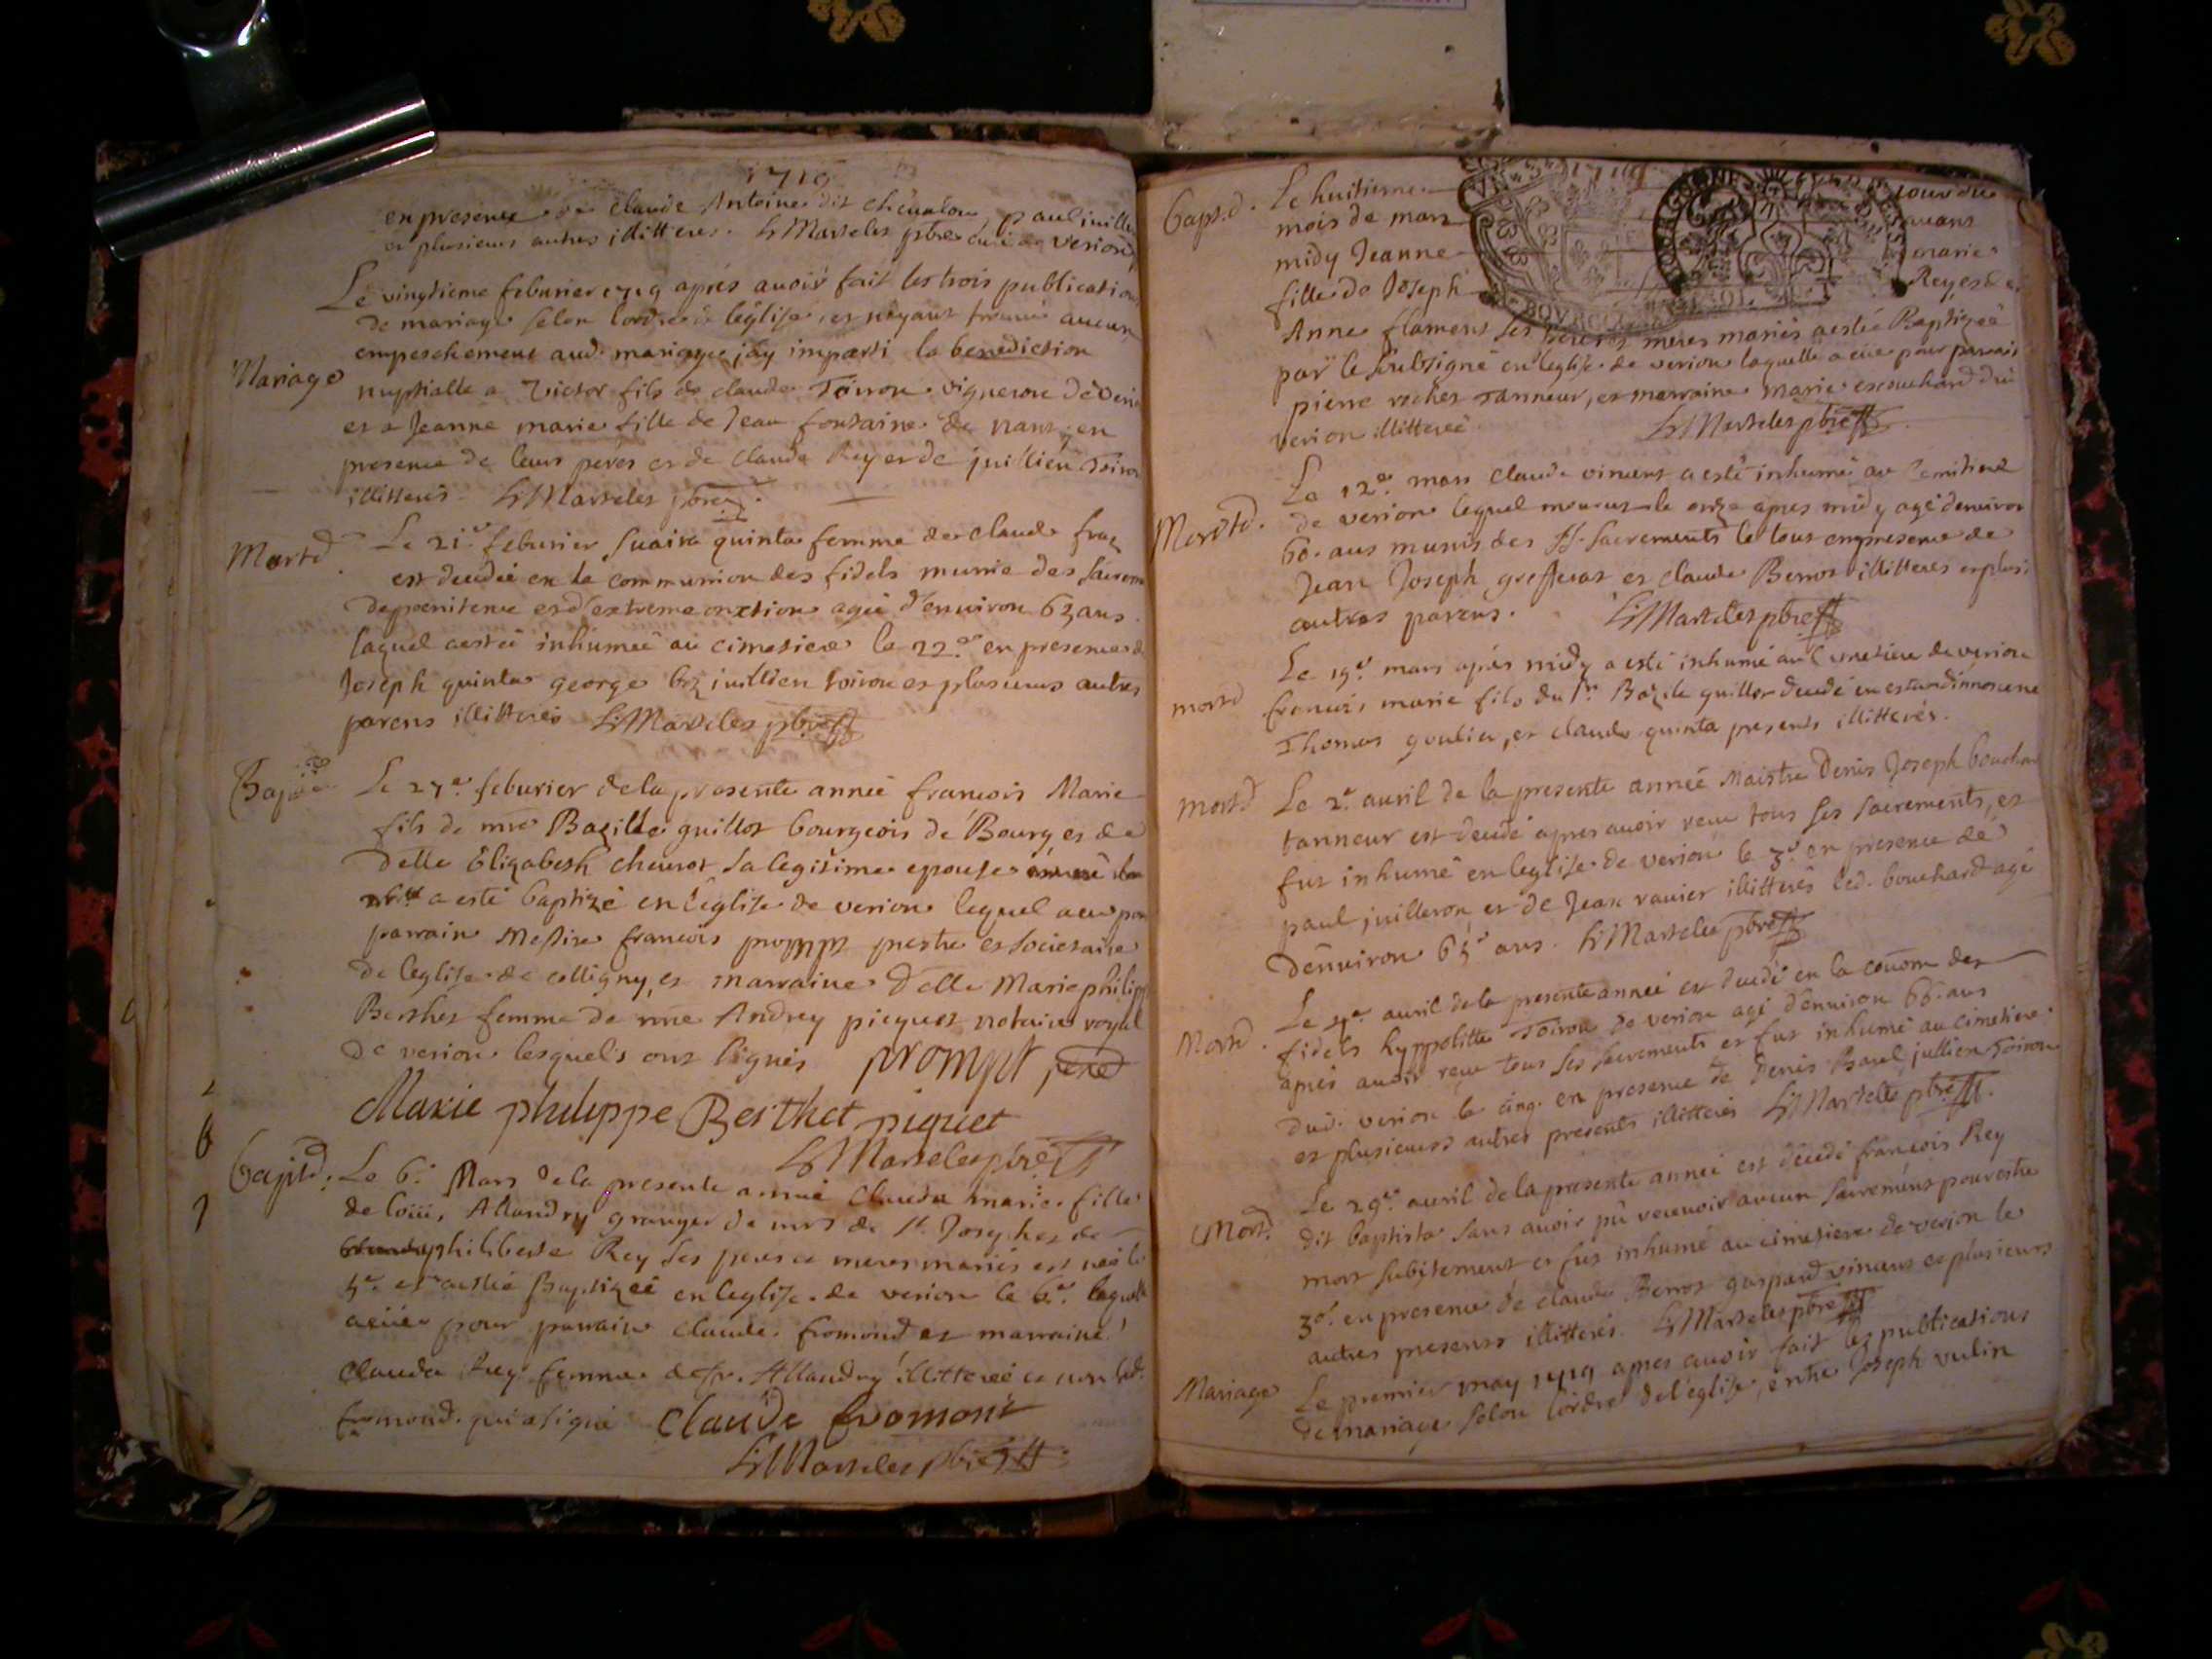 1719
en presence de claude Antoine dit chevalon, paul juille
et plusieurs autres illitteres. h Marteles pbre curé de verion
Le vingtieme feburier 1719 apres avoir fait les trois publications
de mariage selon lordre de leglise, et nayant trouvé aucun
empeschement aud. mariage jay imparti la benediction
Mariage
nuptialle a Victor fils de claude Toiron vigneron de Veri
et a Jeanne marie fille de Jean fontaine de nanc, en
presence de leurs peres et de claude Rey et de juillien Toiro
illitterés. h Marteles pbre
Mort
Le 21e feburier Suaira quinta femme de claude fra
est decedée en la communion des fidels munie des sacrem
de poenitence et d'extreme onction agée d'environ 63 ans.
laquel aestée inhumée au cimetiere le 22e en presence d
Joseph quinta george juillien toiron et plusieurs autres
parens illitterés h Marteles pbre
Bap
Le 27e feburier de la presente année françois Marie
fils de mre Bazille guillot bourgeois de Bourg, et de
delle Elizabeth chevrot sa legitime epouse
a esté baptizé en l'église de verion lequel a eu pour
parrain Messire francois prompt prestre et societaire
de leglise de colligny, et marraine delle Marie philipp
Berthet femme de mre Andrey piequet notaire royal
de verion lesquels ont signés prompt pbre
Marie philippe Berthet piquet
h Marteles pbre
baptd.
Le 6e Mars de la presente année Clauda marie fille
de loüi, Allandry granger de mrs de St. Joseph et de
philiberte Rey ses peres et meres mariés est née le
5e et aestée Baptizée en leglise de verion le 6e laquelle
a eüe pour parrain claude fromond et marraine
Clauda Rey femme de fr. Allandry illitterée et non led.
fromond qui a signé Claude fromont
h Marteles pbre
bapt.d.
Le huitieme jour du
mois de mars avant
midy Jeanne marie
fille de Joseph Rey et de
Anne flamens ses peres et meres mariés aestée Baptizée
par le soubsigné en leglise de verion laquelle a eüe pour parrain
pierre rochet Tanneur, et marraine marie escouchard du
verion illitterée h Marteles pbre
Le 12e mars claude vincent a esté inhumé au Cemitiere
Mortd.
de verion lequel mourut le onze apres midy agé denviron
60. ans munis des SS. Sacrements le tout en presence de
Jean Joseph grefferas et claude Berrot illitteres et plusi
autres parens. h Marteles pbre
Le 19e mars après midy a esté inhumé au Cimetiere de verion
mortd
francois marie fils du sr. Bazile guillot decedé en estat dinnocence
Thomas goulier, et claude quinta presents illitterés.
mortd
Le 2e avril de la presente année Maistre Denis Joseph bouchar
tanneur est decedé apres avoir receu tous ses sacrements, et
fut inhumé en leglise de verion le 3e en presence de
paul juilleron et de Jean ravier illitterés led. bouchard agé
denviron 65 ans. h Marteles pbre
Mortd.
Le 4e avril de la presente année est decedé en la cõuon des
fidels hyppolitte Toiron de verion agé denviron 66. ans
apres avoir receu tous ses sacrements et fut inhumé au cimetiere
dud. verion le cinq. en presence de Denis Paul jullien Toiron
et plusieurs autres presents illitterés h Marteles pbre
Mort.
Le 29e avril de la presente année est decedé francois Rey
dit baptista sans avoir pû recevoir aucun sacrements pour estre
mort subitement et fut inhumé au cimetiere de verion le
30e. en presence de claude Berrot gaspard vincent et plusieurs
autres presents illitterés h Marteles pbre
Mariage
Le premier may 1719 apres avoir fait les publications
de mariage selon lordre de l'église, entre Joseph vulin